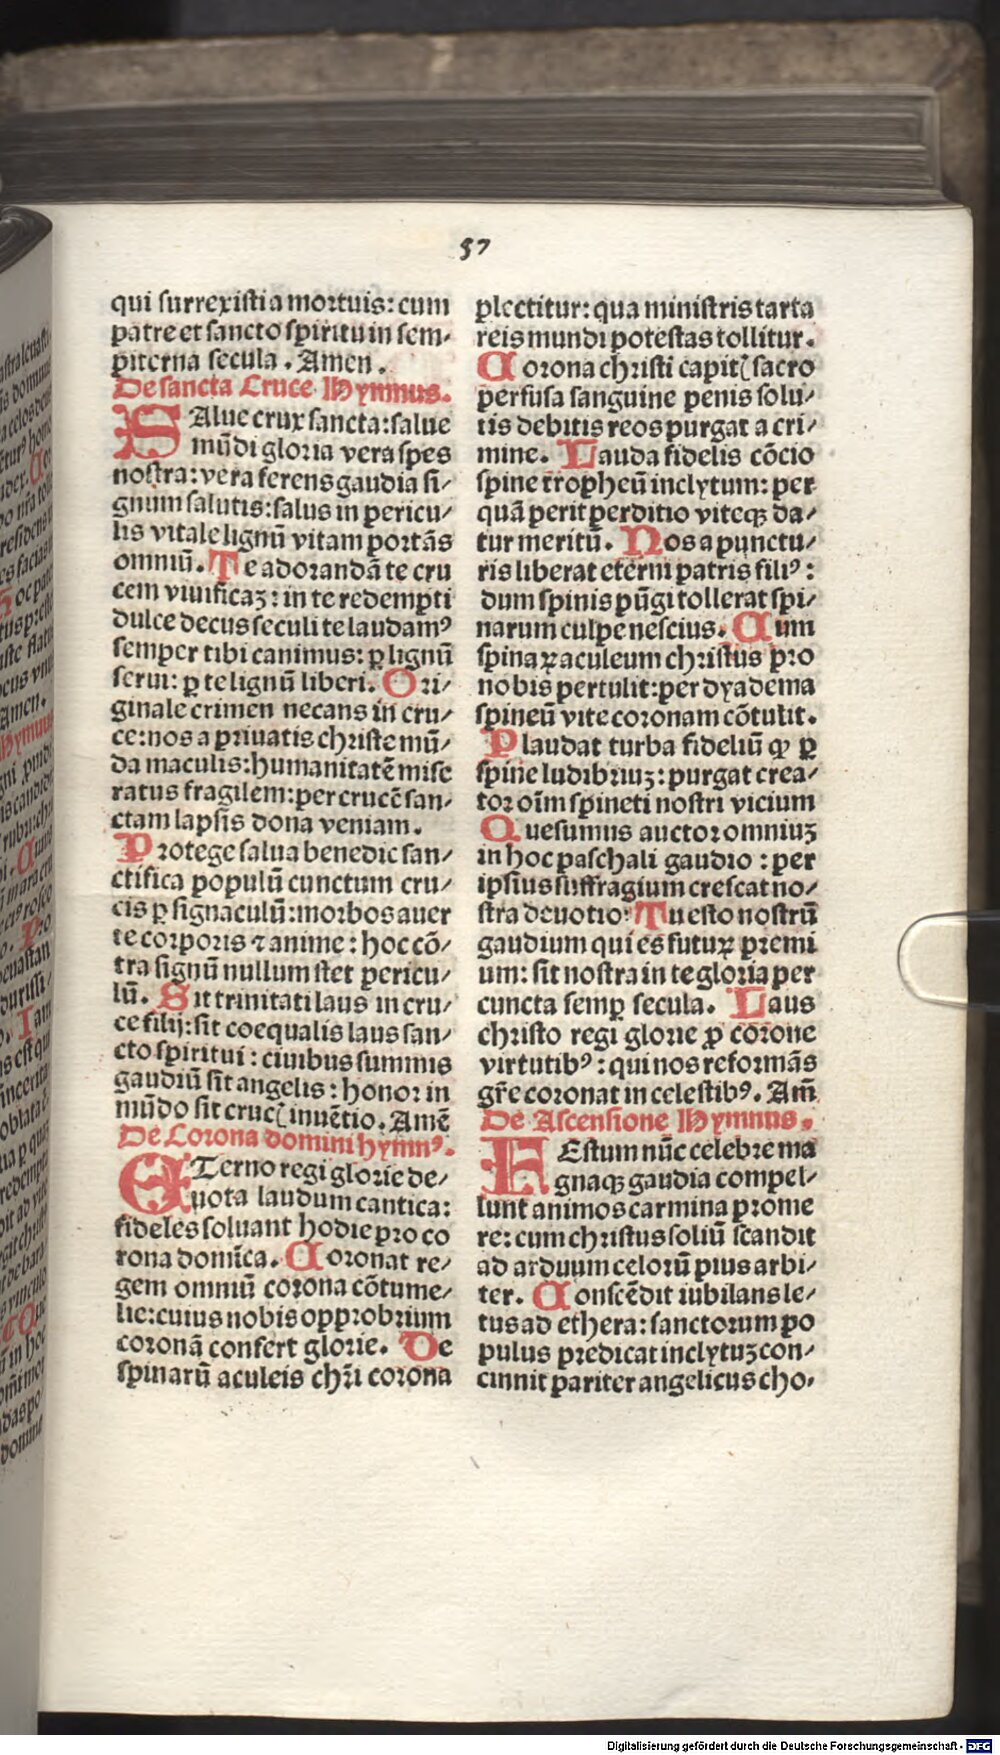 57
qui surrexisti a mortuis: cum
patre et sancto spiritu in sem⸗
piterna secula. Amen.
De sancta Cruce Hymnus.
SAlue crux sancta: salue
mūdi gloria vera spes
nostra: vera ferens gaudia si⸗
gnum salutis: salus in pericu⸗
lis vitale lignū vitam portās
omniū. Te adorandā te cru
cem viuificaꝫ: in te redempti
dulce decus seculi te laudamꝰ
semper tibi canimus: ꝑ lignū
serui: ꝑ te lignū liberi. Ori⸗
ginale crimen necans in cru⸗
ce: nos a priuatis christe mū⸗
da maculis: humanitatē mise
ratus fragilem: per crucē san⸗
ctam lapsis dona veniam.
Protege salua benedic san⸗
ctifica populū cunctum cru⸗
cis ꝑ signaculū: morbos auer
te corporis ⁊ anime: hoc cō⸗
tra signū nullum stet pericu⸗
lū. Sit trinitati laus in cru⸗
ce filij: sit coequalis laus san⸗
cto spiritui: ciuibus summis
gaudiū sit angelis: honor in
mūdo sit crucꝭ inuētio. Amē
De Corona domini hymnꝰ.
ETerno regi glorie de⸗
uota laudum cantica:
fideles soluant hodie pro co
rona domīca. Coronat re⸗
gem omniū corona cōtume⸗
lie: cuius nobis opprobrium
coronā confert glorie. De
spinarū aculeis chr̄i corona
plectitur: qua ministris tarta
reis mundi potestas tollitur.
Corona christi capitꝭ sacro
perfusa sanguine penis solu⸗
tis debitis reos purgat a cri⸗
mine. Lauda fidelis cōcio
spine tropheū inclytum: per
quā perit perditio viteqꝫ da⸗
tur meritū. Nos a punctu⸗
ris liberat eterni patris filiꝰ:
dum spinis pūgi tollerat spi⸗
narum culpe nescius. Cum
spinaꝝ aculeum christus pro
nobis pertulit: per dyadema
spineū vite coronam cōtulit.
Plaudat turba fideliū ꝙ ꝑ
spine ludibriuꝫ: purgat crea⸗
tor oīm spineti nostri vicium
Quesumus auctor omniuꝫ
in hoc paschali gaudio: per
ipsius suffragium crescat no⸗
stra deuotio: Tu esto nostrū
gaudium qui es futuꝝ premi
um: sit nostra in te gloria per
cuncta semꝑ secula. Laus
christo regi glorie ꝓ corone
virtutibꝰ: qui nos reformās
gr̄e coronat in celestibꝰ. Am̄
De Ascensione Hymnus.
FEstum nūc celebre ma
gnaqꝫ gaudia compel⸗
lunt animos carmina prome
re: cum christus soliū scandit
ad arduum celorū pius arbi⸗
ter. Conscēdit iubilans le⸗
tus ad ethera: sanctorum po
pulus predicat inclytuꝫ con⸗
cinnit pariter angelicus cho⸗
Digitalisierung gefördert durch die Deutsche Forschungsgemeinschaft - DFG